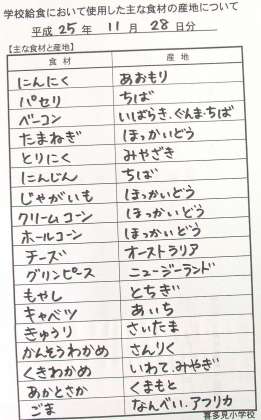 学校給食において使用した主な食材の産地について
平成 25 年 11 月 28 日分
【主な食材と産地】
食材 産地
にんにく あおもり
パセリ ちば
ベーコン いばらき.ぐんま.ちば
たまねぎ ほっかいどう
とりにく みやざき
にんじん ちば
じゃがいも ほっかいどう
クリームコーン ほっかいどう
ホールコーン ほっかいどう
チーズ オーストラリア
グリンピース ニュージーランド
もやし とちぎ
キャベツ あいち
きゅうり さいたま
かんそうわかめ さんりく
くきわかめ いわて.みやぎ
あかとさか くまもと
ごま なんべい.アフリカ
喜多見小学校